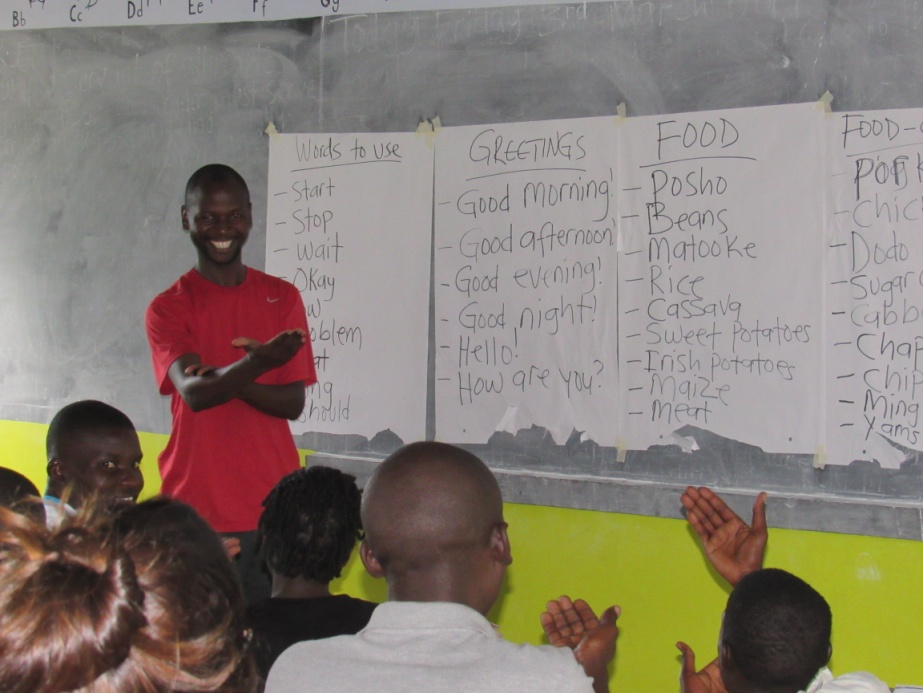 Bb Cc Dd Ee Ff Gg
Words to use
- Start
- Stop
- Wait
Okay
hould
GREETINGS
- Good Morning!
- Good afternoon
- Good evening!
- Good night!
- Hello!
- How are you?
FOOD
- Posho
- Beans
- Matooke
- Rice
- Cassava
- Sweet Potatoes
- Irish potatoes
- Maize
- Meat
FOOD-
- Chic
- Dodo
- Sugar
- Cabb
- Chap
- Chip
- Ming
- Yams